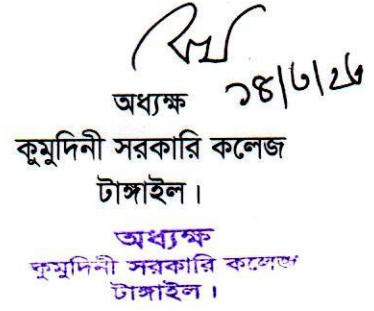 অধ্যক্ষ
কুমুদিনী সরকারি কলেজ
টাঙ্গাইল।
অধ্যক্ষ
কুমুদিনী সরকারি কলেজ
টাঙ্গাইল।